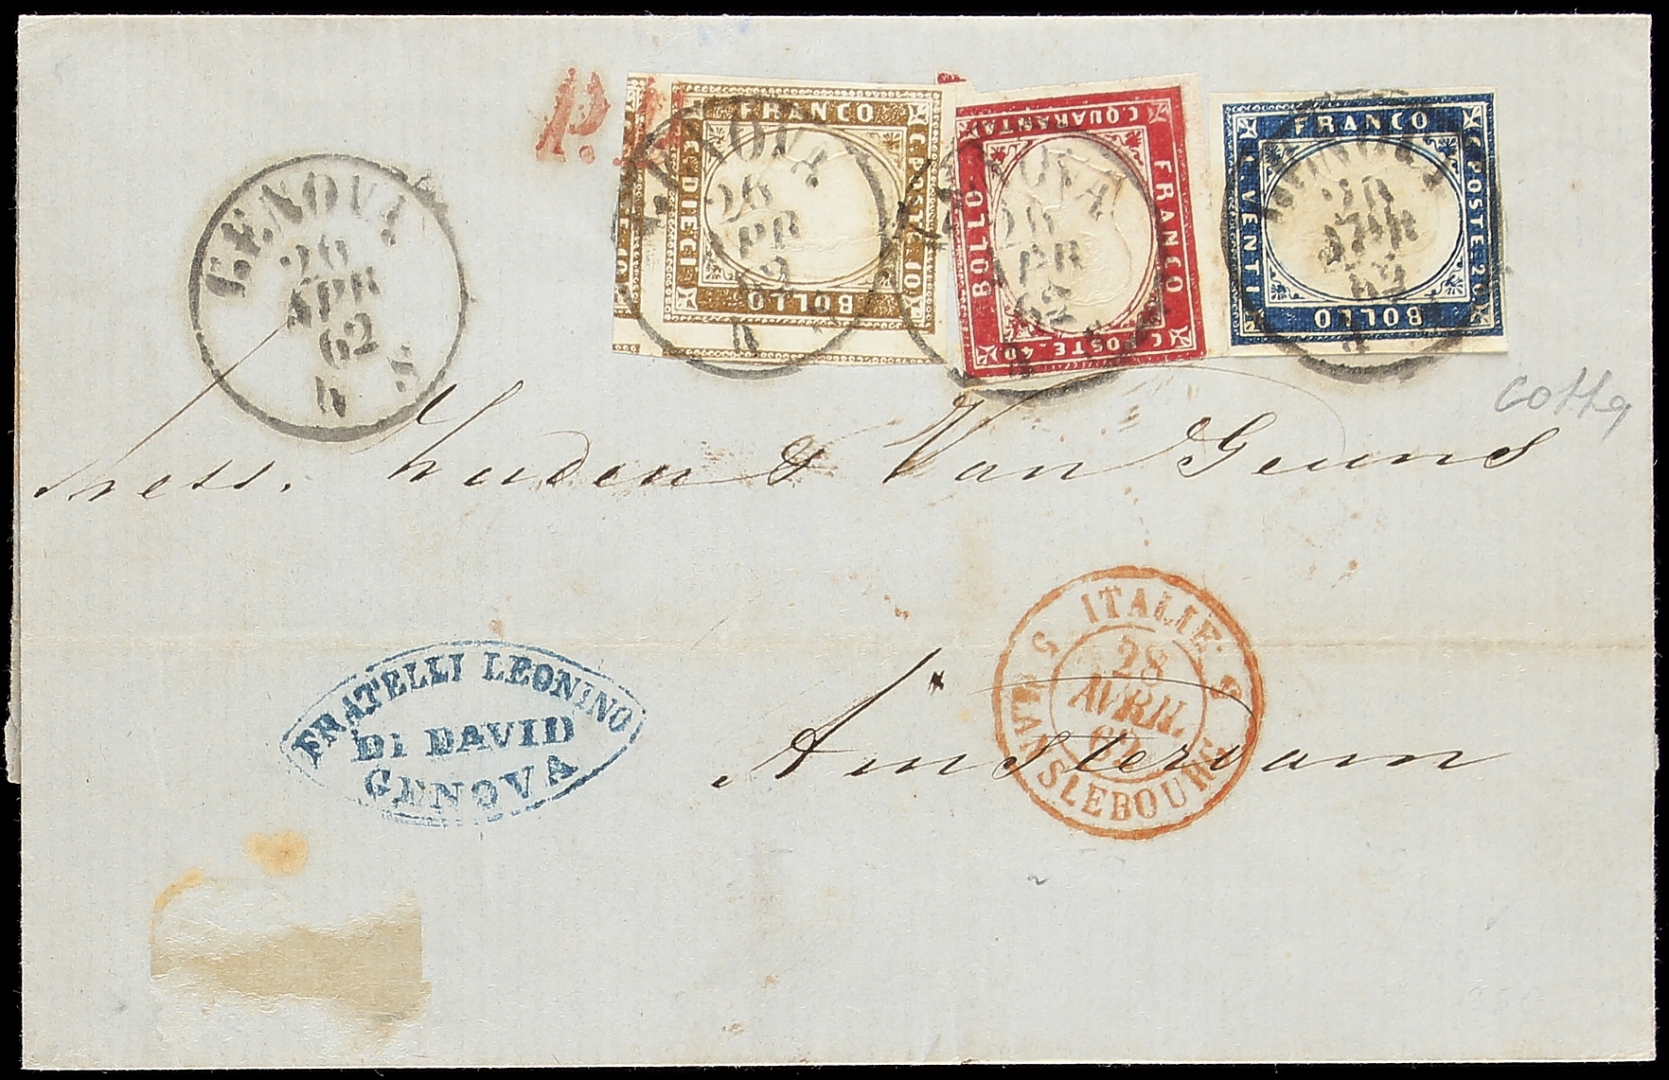 P.D.
GENOVA
26
APR
62
4 S
FRANCO
C. POSTE 10
BOLLO
C. DIECI
GENOVA
26
APR
62
4 S
FRANCO
C. POSTE. 40
BOLLO
C QUARANTA
GENOVA
26
APR
62
4 S
FRANCO
C. POSTE 20
BOLLO
C. VENTI
GENOVA
26
APR
62
4
& Van Geuns
Amsterdam
5 ITALIE. 5
28
AVRIL
62
LANSLEBOURG
FRATELLI LEONINO
DI DAVID
GENOVA